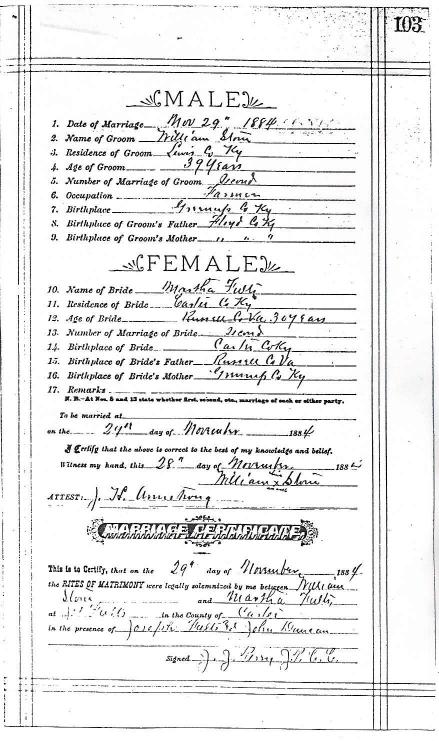 103
MALE
1. Date of Marriage Nov 29" 1884
2. Name of Groom William Stone
3. Residence of Groom Lewis Co Ky
4. Age of Groom 39 years
5. Number of Marriage of Groom Second
6. Occupation Farmer
7. Birthplace Greenup Co Ky
8. Birthplace of Groom's Father Floyd Co Ky
9. Birthplace of Groom's Mother " " "
FEMALE
10. Name of Bride Martha Fults
11. Residence of Bride Carter Co Ky
12. Age of Bride Russell Co Va. 30 years
13. Number of Marriage of Bride Second
14. Birthplace of Bride Carter Co Ky
15. Birthplace of Bride's Father Russell Co Va
16. Birthplace of Bride's Mother Greenup Co Ky
17. Remarks
N. B.—At Nos. 5 and 13 state whether first, second, etc., marriage of each or either party.
To be married at
on the 29" day of November 1884
I Certify that the above is correct to the best of my knowledge and belief.
Witness my hand, this 28" day of November 188
William x Stone
ATTEST: J. H. Armstrong
MARRIAGE CERTIFICATE.
This is to Certify, that on the 29" day of November 1884
the RITES OF MATRIMONY were legally solemnized by me between William
Stone and Martha Fults
at Fults in the County of Carter
in the presence of Joseph Fults & John Duncan
Signed J. J. Berry J.P.C.C.